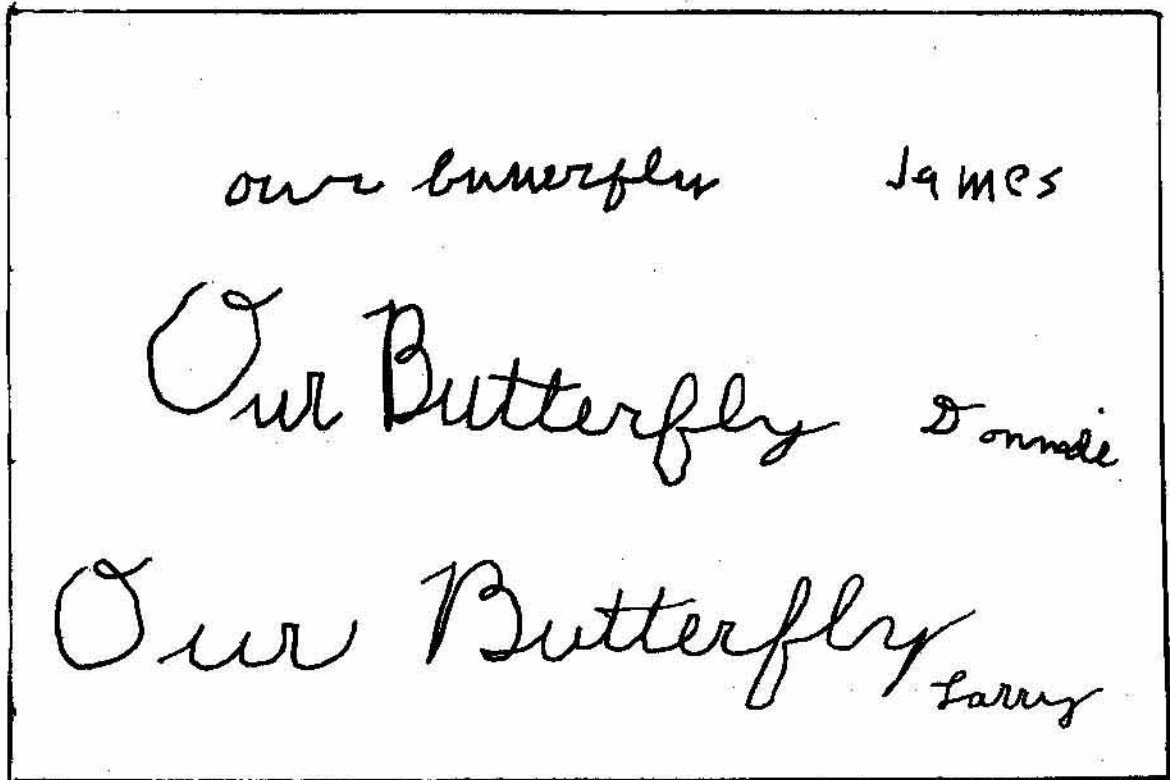 our butterfly James
Our Butterfly Donnie
Our Butterfly Larry